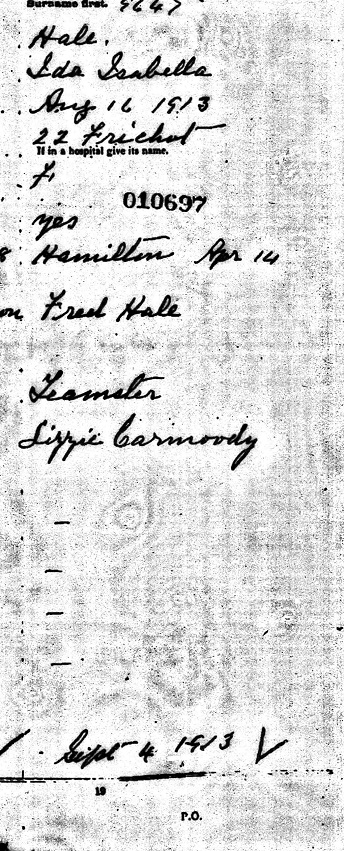 Surname first. 9647
Hale.
Ida Isabella
Aug 16 1913
22 Frichot
If in a hospital give its name.
F
010697
yes
8 Hamilton Apr 14
on Fred Hale
Teamster
Lizzie Carmoody
—
—
—
—
Sept 4 1913
19
P.O.